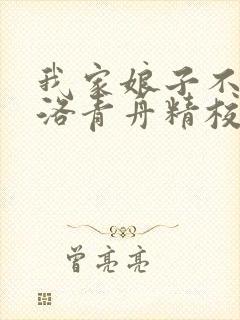 我家娘子不
洛青丹精校
曾亮亮